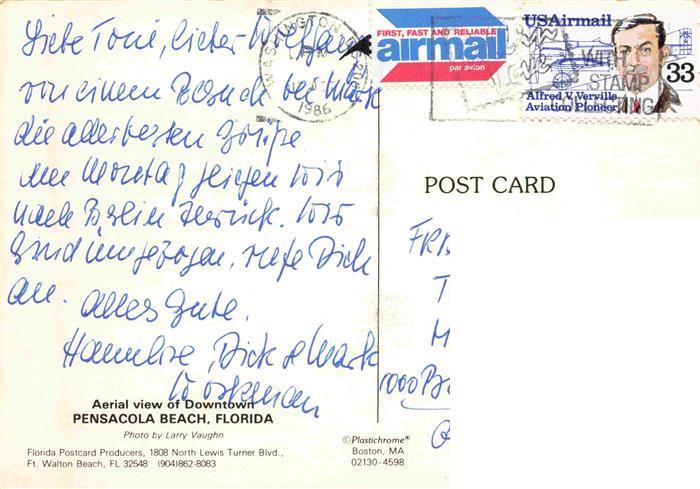 Liebe Toni, lieber Wolfgang
von einem Besuch bei Mark
die allerbesten Grüße
Am Montag fliegen wir
nach Berlin zurück. Wir
sind umgezogen, rufe Dick
an. Alles Gute.
Hannelore, Dick & Mark
Workman
Aerial view of Downtown
PENSACOLA BEACH, FLORIDA
Photo by Larry Vaughn
Florida Postcard Producers, 1808 North Lewis Turner Blvd.,
Ft. Walton Beach, FL 32548 (904)862-8083
©Plastichrome®
Boston, MA
02130-4598
WASHINGTON
1986
FIRST, FAST AND RELIABLE
airmail
par avion
USAirmail
33
Alfred V. Verville
Aviation Pioneer
WITH
STAMP
POST CARD
FRB
T
M
1000 B